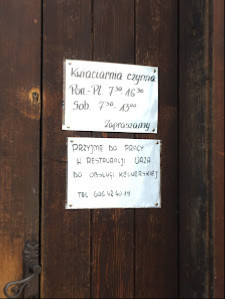 Kwiaciarnia czynna
Pon.-Pt. 7³⁰-16³⁰
Sob. 7³⁰-13⁰⁰
Zapraszamy
PRZYJMĘ DO PRACY
W RESTAURACJI
DO OBSŁUGI KELNERSKIEJ
TEL